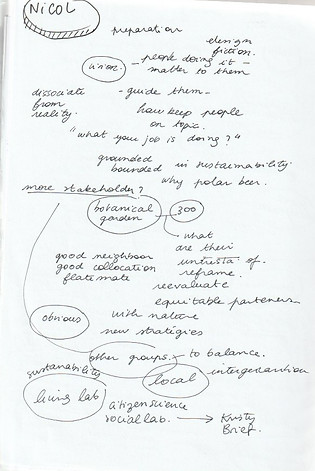 NICOL
preparation
design
fiction.
union. - people doing it -
matter to them
dissociate - guide them -
from
reality. how keep people
on topic.
"what your job is doing?"
grounded
bounded in sustainability.
why polar beer.
more stakeholder?
botanical 300
garden
what
are their
of.
good neighboor reframe.
good collocation reevaluate
flatemate
equitable parteners
obvious with nature
new strategies
other groups. to balance.
sustanability
local
living lab
citizenscience
social lab. → Kirsty
Brief.